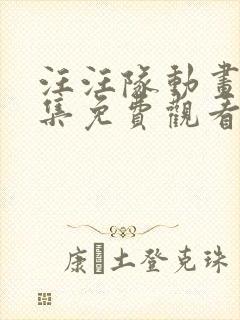 汪汪隊動畫
集免費觀看
康土登克珠